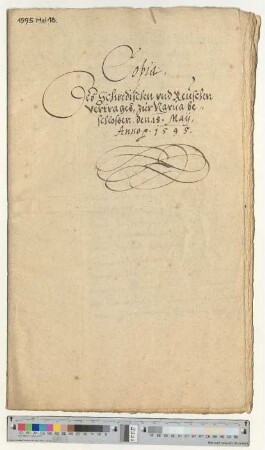 1595 Mai 18.
Copia
Des Schwedischen vnd Reuschen
vertrages, zur Narua be-
schloßen den 18. Maij.
Anno p. 1595.